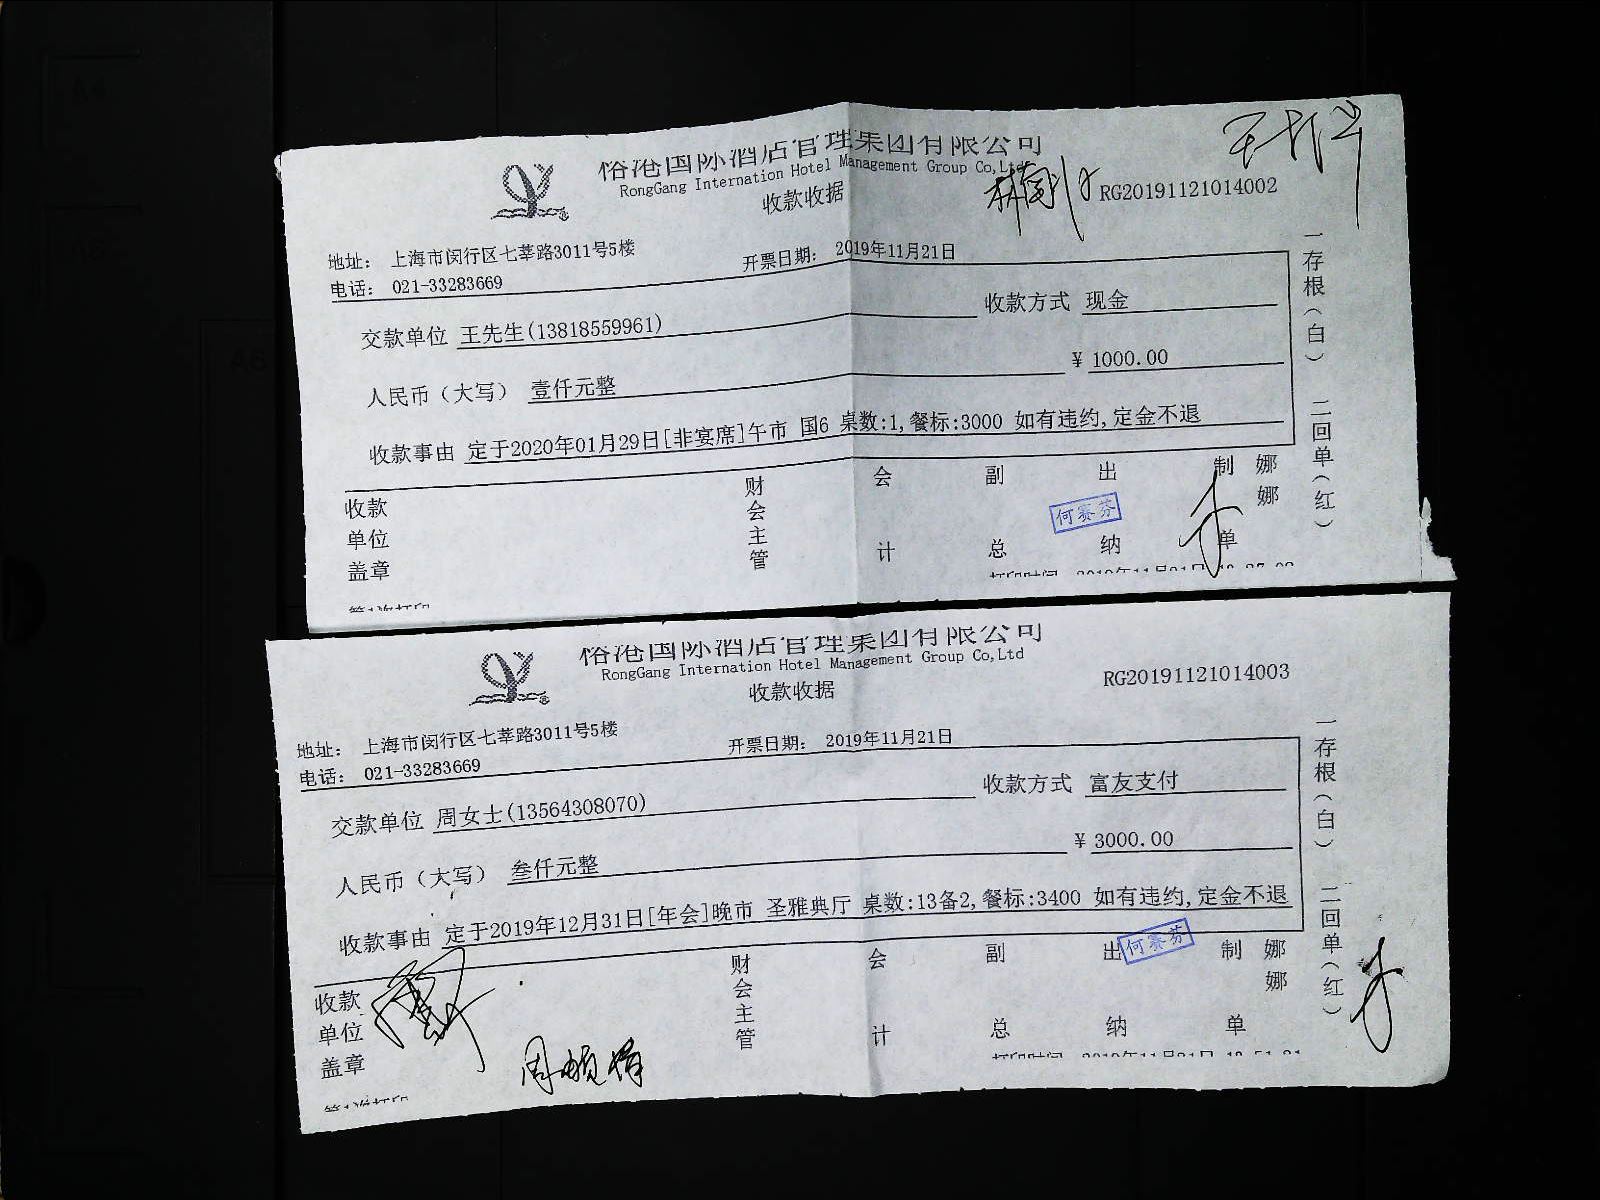 裕港国际酒店管理集团有限公司
RongGang Internation Hotel Management Group Co,Ltd
收款收据
RG20191121014002
地址： 上海市闵行区七莘路3011号5楼
开票日期： 2019年11月21日
电话： 021-33283669
交款单位 王先生(13818559961)
收款方式 现金
人民币（大写） 壹仟元整
¥ 1000.00
收款事由 定于2020年01月29日[非宴席]午市 国6 桌数:1,餐标:3000 如有违约,定金不退
一存根（白） 二回单（红）
收款单位盖章
财会主管
会计
副总
出纳
何赛芬
制单
娜娜
第1次打印
裕港国际酒店管理集团有限公司
RongGang Internation Hotel Management Group Co,Ltd
收款收据
RG20191121014003
地址： 上海市闵行区七莘路3011号5楼
开票日期： 2019年11月21日
电话： 021-33283669
交款单位 周女士(13564308070)
收款方式 富友支付
人民币（大写） 叁仟元整
¥ 3000.00
收款事由 定于2019年12月31日[年会]晚市 圣雅典厅 桌数:13备2,餐标:3400 如有违约,定金不退
一存根（白） 二回单（红）
收款单位盖章
财会主管
会计
副总
出纳
何赛芬
制单
娜娜